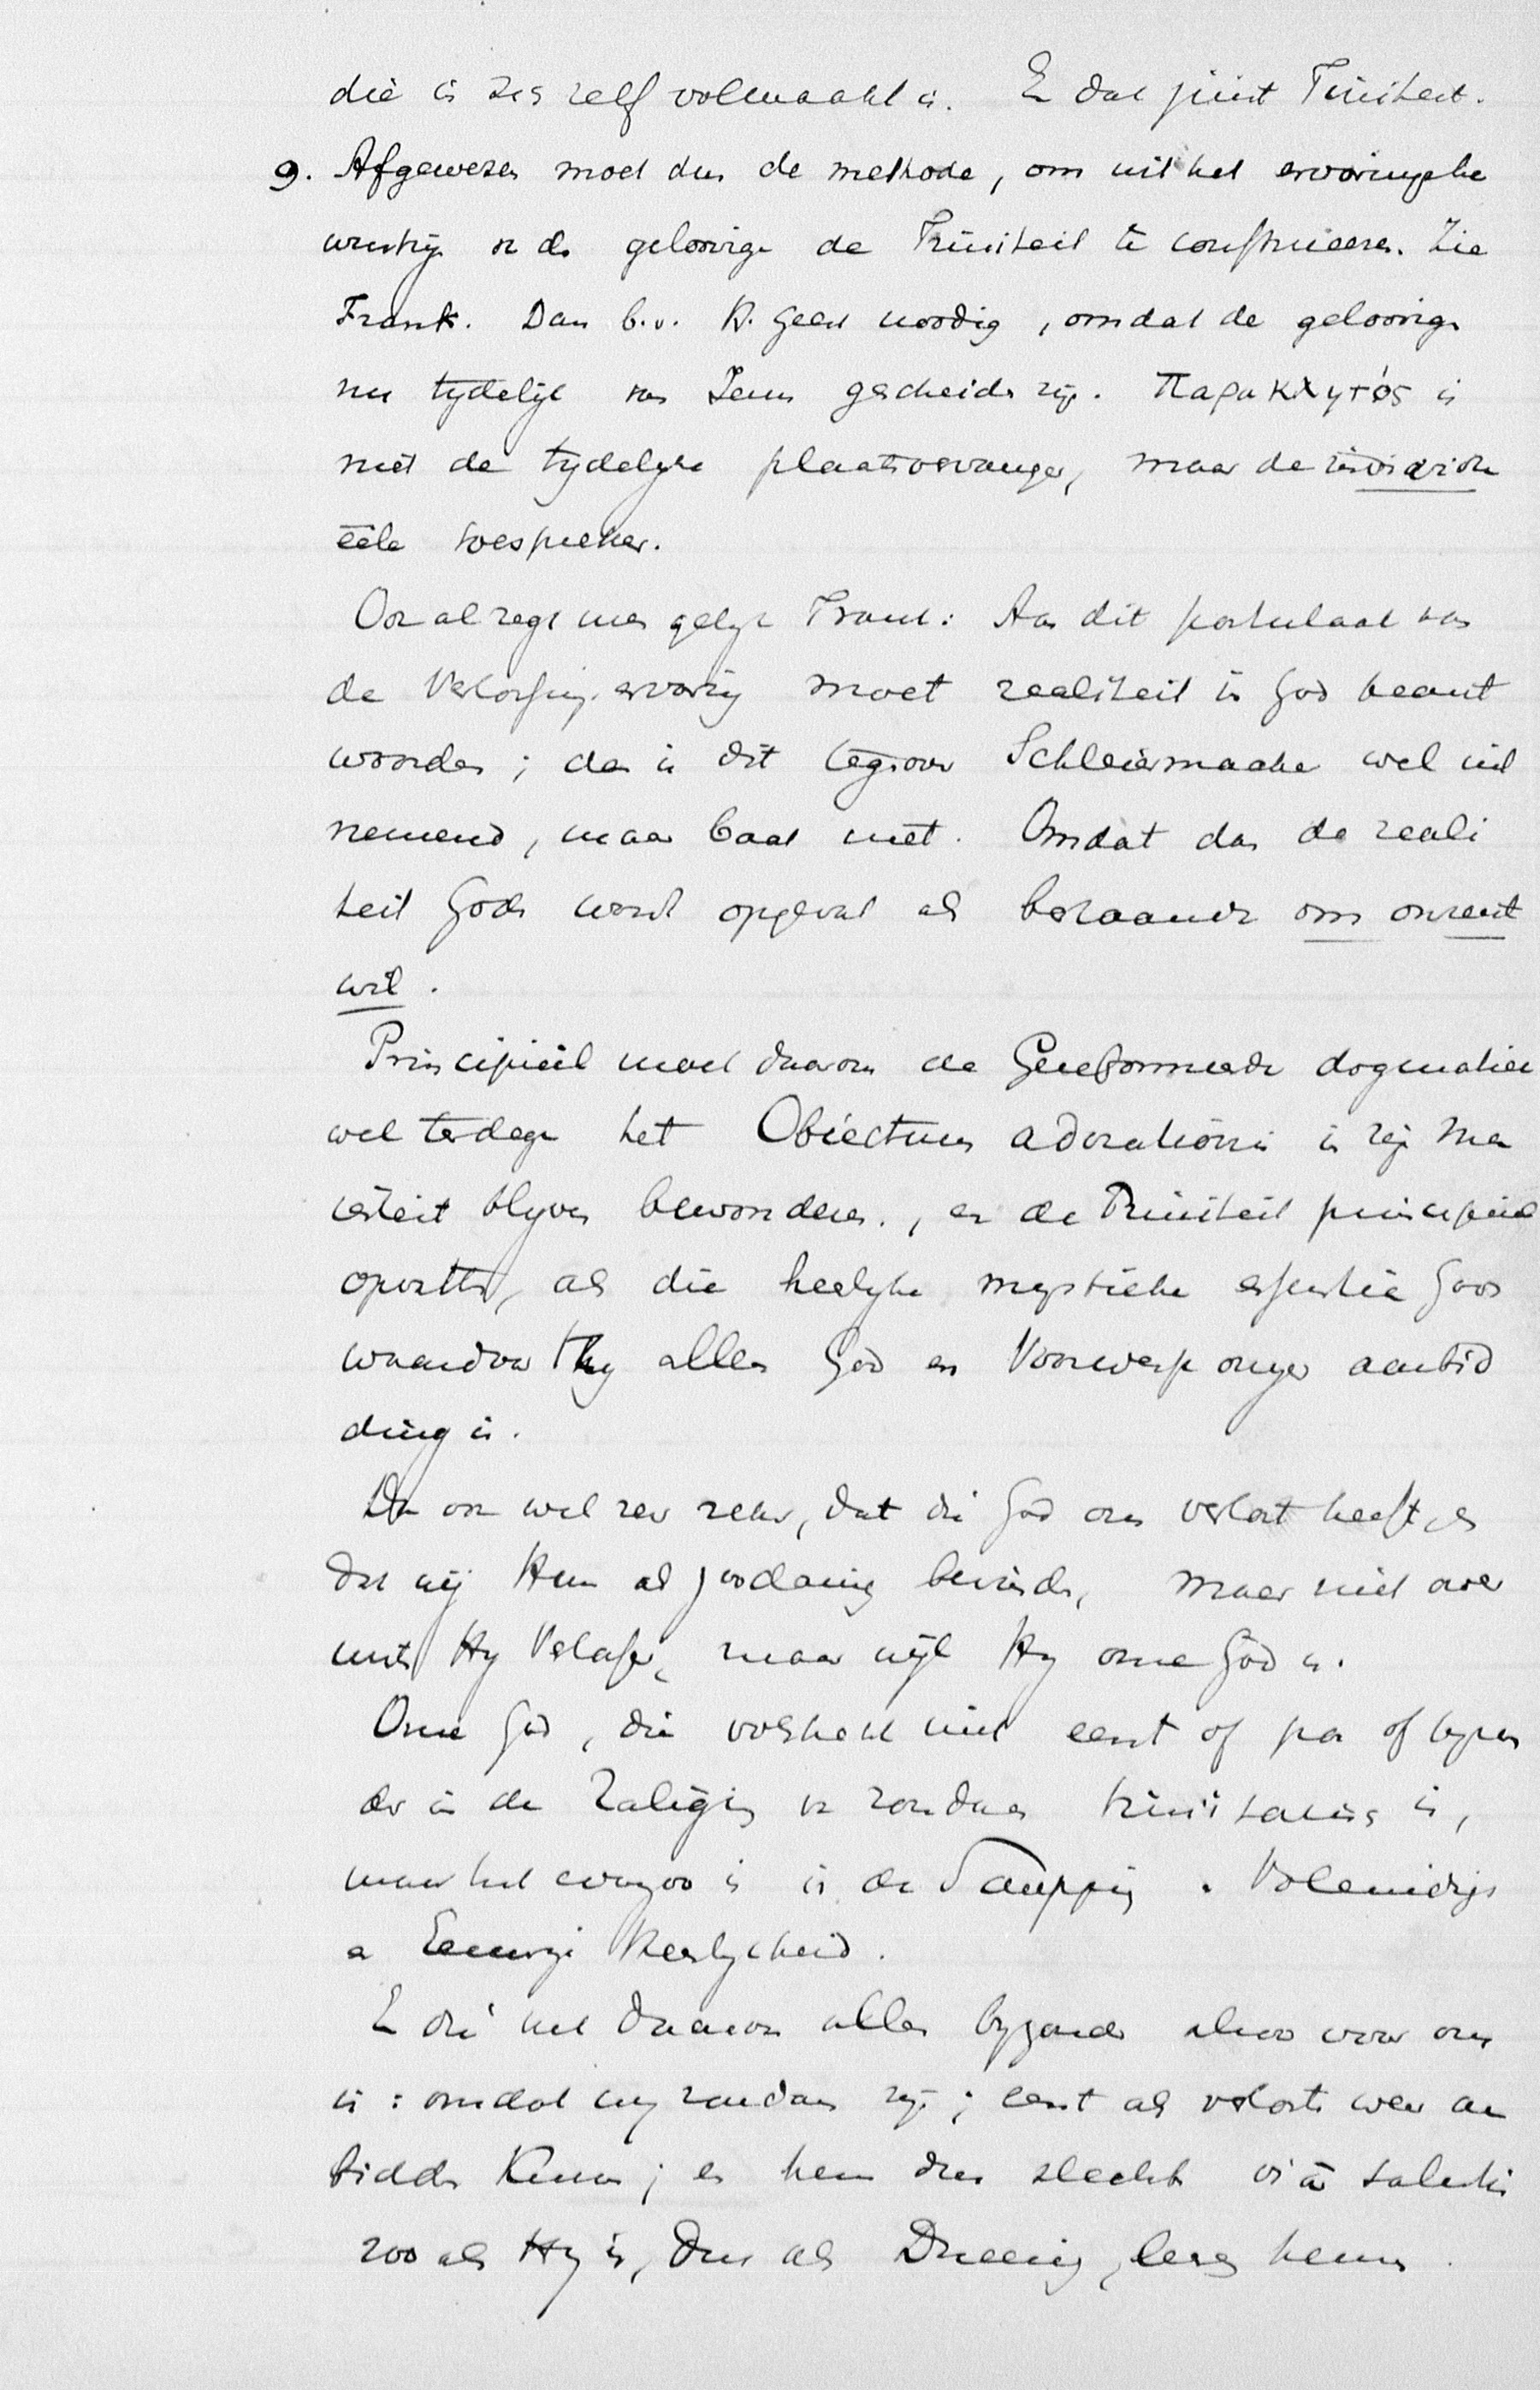 die in zich zelf volmaakt is. En dat juist Triniteit.
9. Afgewezen moet dus de methode, om uit het ervaringsbe
wustzijn v. d. geloovige de Triniteit te construeeren. Zie
Frank. Dan b.v. H. Geest noodig, omdat de geloovige
nu tijdelijk van Jezus gescheiden zijn. Παρακλητός is
niet de tijdelijke plaatsvervanger, maar de
eele toespreker.
Ook al zegt men gelijk Frank: Aan dit postulaat van
de Verlossings ervaring moet realiteit in God beant
woorden; dan is dit tegenover Schleiermacher wel uit
nemend, maar baat niet. Omdat dan de reali
teit Gods wordt opgevat als bestaande om onzent
wil.
Principieel moet daarom de Gereformeerde dogmatiek
wel terdege het Obiectum adorationis in zijn ma
jesteit blijven bewonderen, en de Triniteit principieel
opvatten, als die heerlijke mystieke essentie Gods
waardoor Hij alleen God en Voorwerp onzer aanbid
ding is.
Dan ook wel zeer zeker, dat die God ons verlost heeft, en
dat wij Hem als zoodanig bevinden, maar niet over
mits Hij Verlosser, maar wijl Hij onze God is.
Onze God, die volstrekt niet eerst of pas of bijzon
der in de Zaliging v. zondaren trinitarisch is,
maar het evenzoo is in de Schepping. Voleinding
en Eeuwige Heerlijkheid.
En die het daarom alleen bijzonder alzoo voor ons
is: omdat wij zondaars zijn; eerst als verloste weer aan
bidden kunnen; en hem dus slechts viâ salutis
zoo als Hij is, dus als Drieenig, leeren kennen.